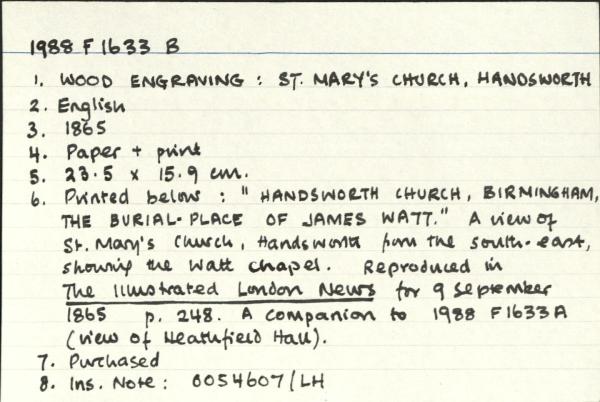 1988 F 1633 B
1. WOOD ENGRAVING : ST. MARY'S CHURCH, HANDSWORTH
2. English
3. 1865
4. Paper + print
5. 23.5 x 15.9 cm.
6. Printed below : "HANDSWORTH CHURCH, BIRMINGHAM,
THE BURIAL-PLACE OF JAMES WATT." A view of
St. Mary's Church, Handsworth from the south-east,
showing the Watt chapel. Reproduced in
The Illustrated London News for 9 September
1865 p. 248. A companion to 1988 F1633A
(view of Heathfield Hall).
7. Purchased
8. Ins. Note : 0054607/LH